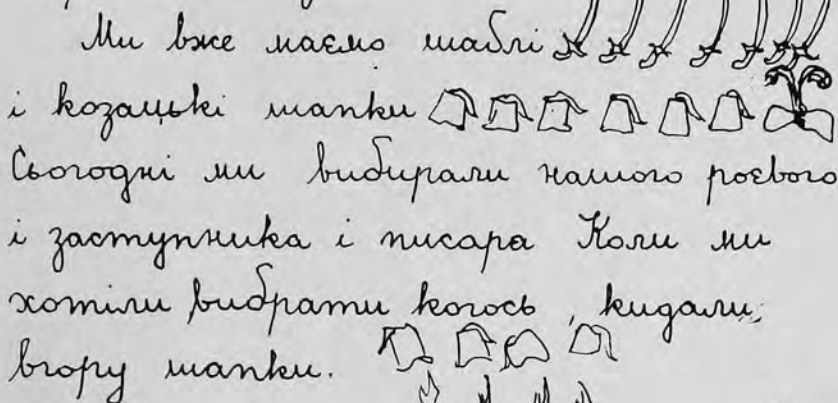 Ми вже маємо шаблі
і козацькі шапки
Сьогодні ми вибирали нашого роєвого
і заступника і писара Коли ми
хотіли вибрати когось, кидали
вгору шапки.